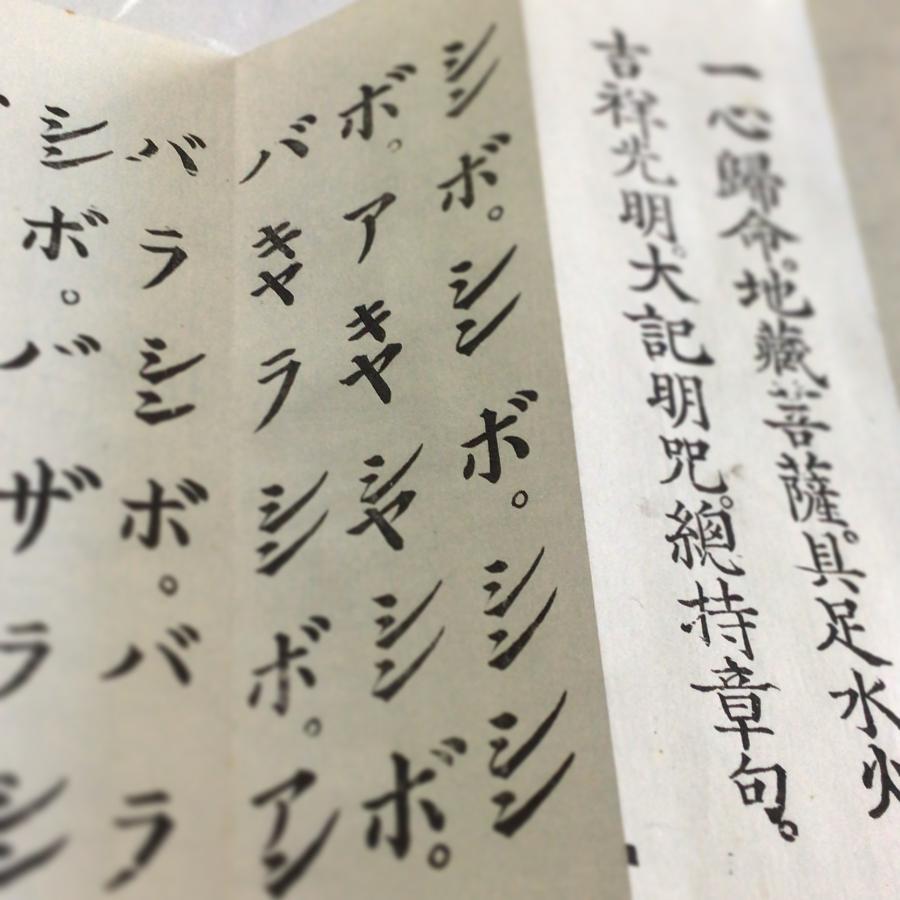 一心歸命。地藏菩薩。具足水火
吉祥光明。大記明咒。總持章句。
シンボ。シンボ。シンシン
ボ。アキャシャシンボ。
バキャラシンボ。アン
バラシンボ。バラ
シンボ。バザラシン